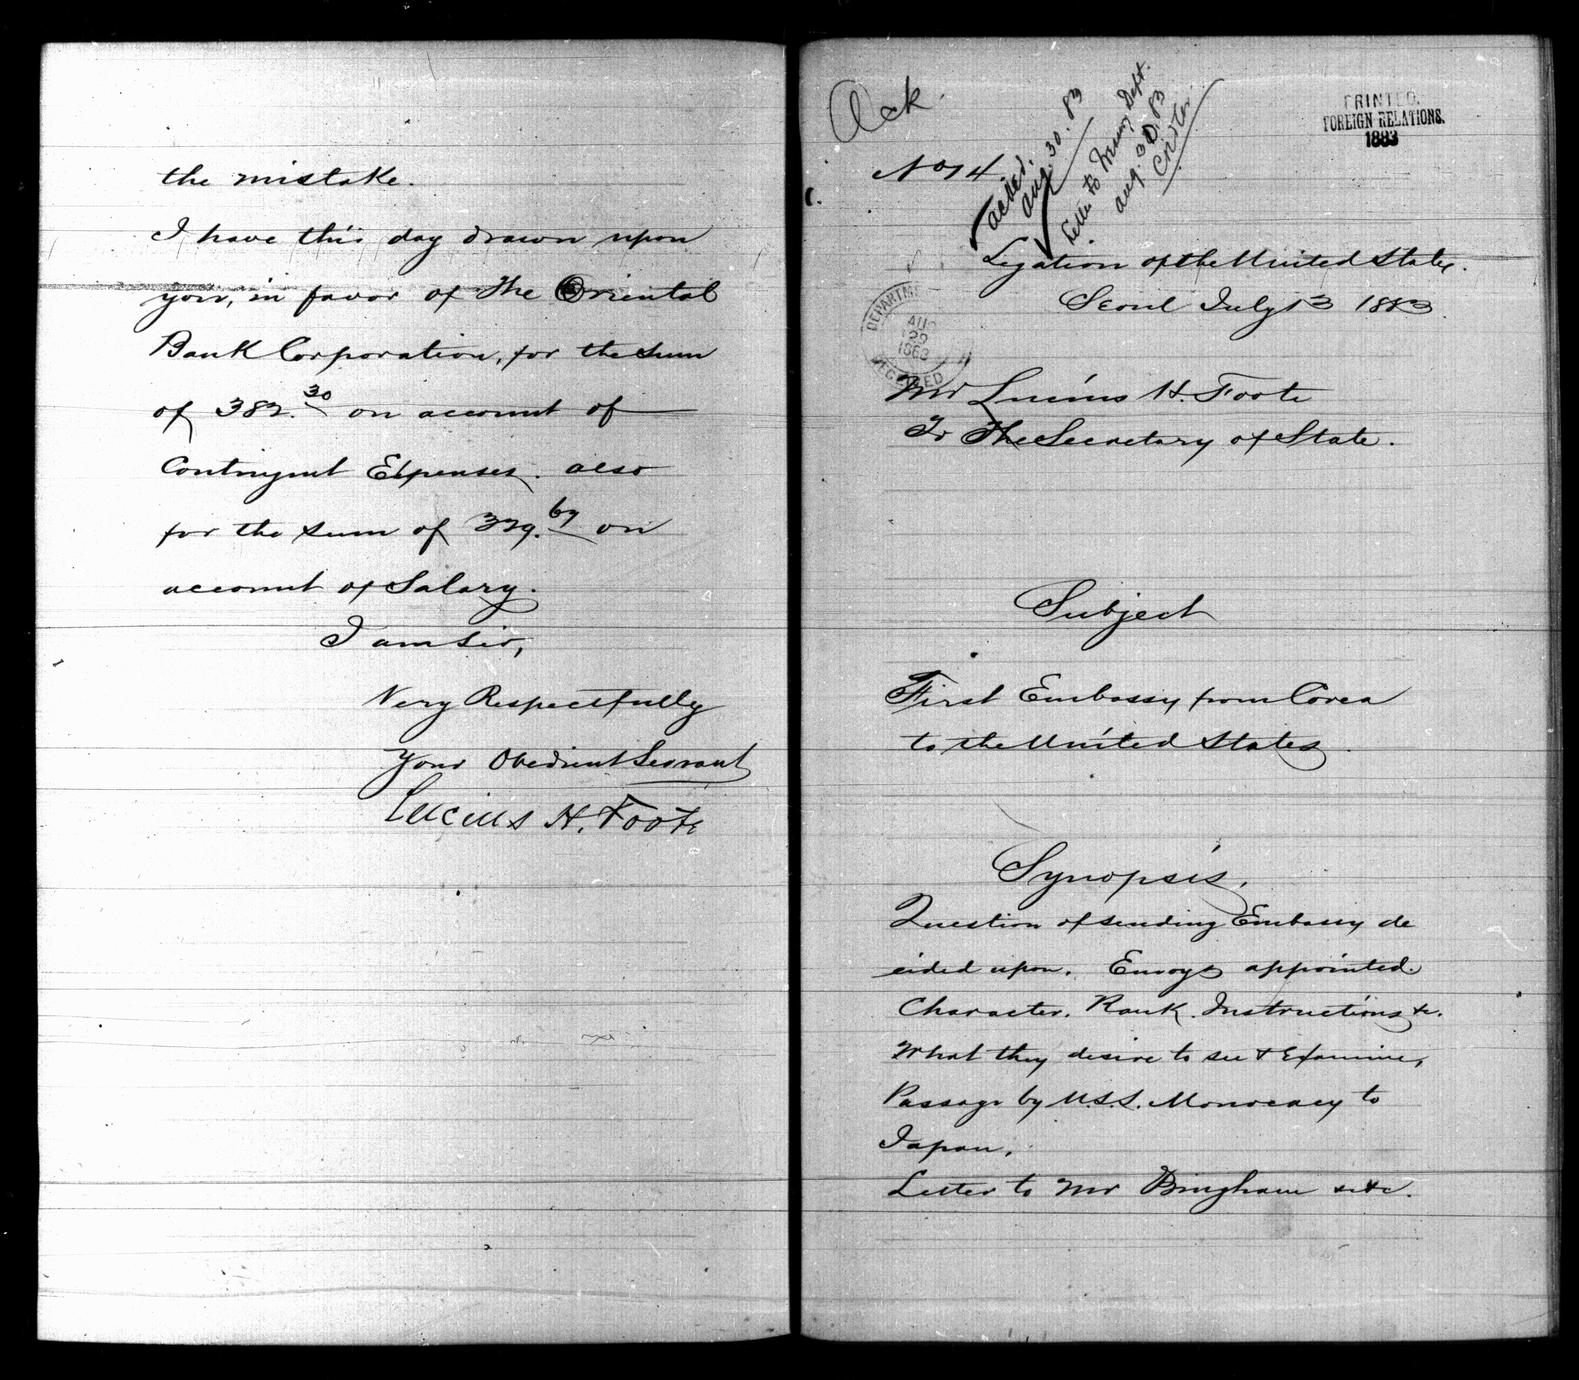 the mistake.
I have this day drawn upon
you, in favor of The Oriental
Bank Corporation, for the sum
of 382.30 on account of
Contingent Expenses. also
for the sum of 329.67 on
account of Salary.
I am sir,
Very Respectfully
Your Obedient Servant
Lucius H. Foote
Ack.
PRINTED.
FOREIGN RELATIONS.
1883
No 14
acked.
Aug. 30. 83
Letter to Navy Dept.
Aug. 30. 83
Legation of the United States.
Seoul July 13 1883.
DEPARTMENT
AUG
1883
RECEIVED
Mr Lucius H. Foote
To The Secretary of State.
Subject
First Embassy from Corea
to the United States.
Synopsis.
Question of sending Embassy de
cided upon. Envoys appointed.
Character. Rank. Instructions &c.
What they desire to see & Examine,
Passage by U.S.S. Monocacy to
Japan.
Letter to Mr Bingham &c &c.